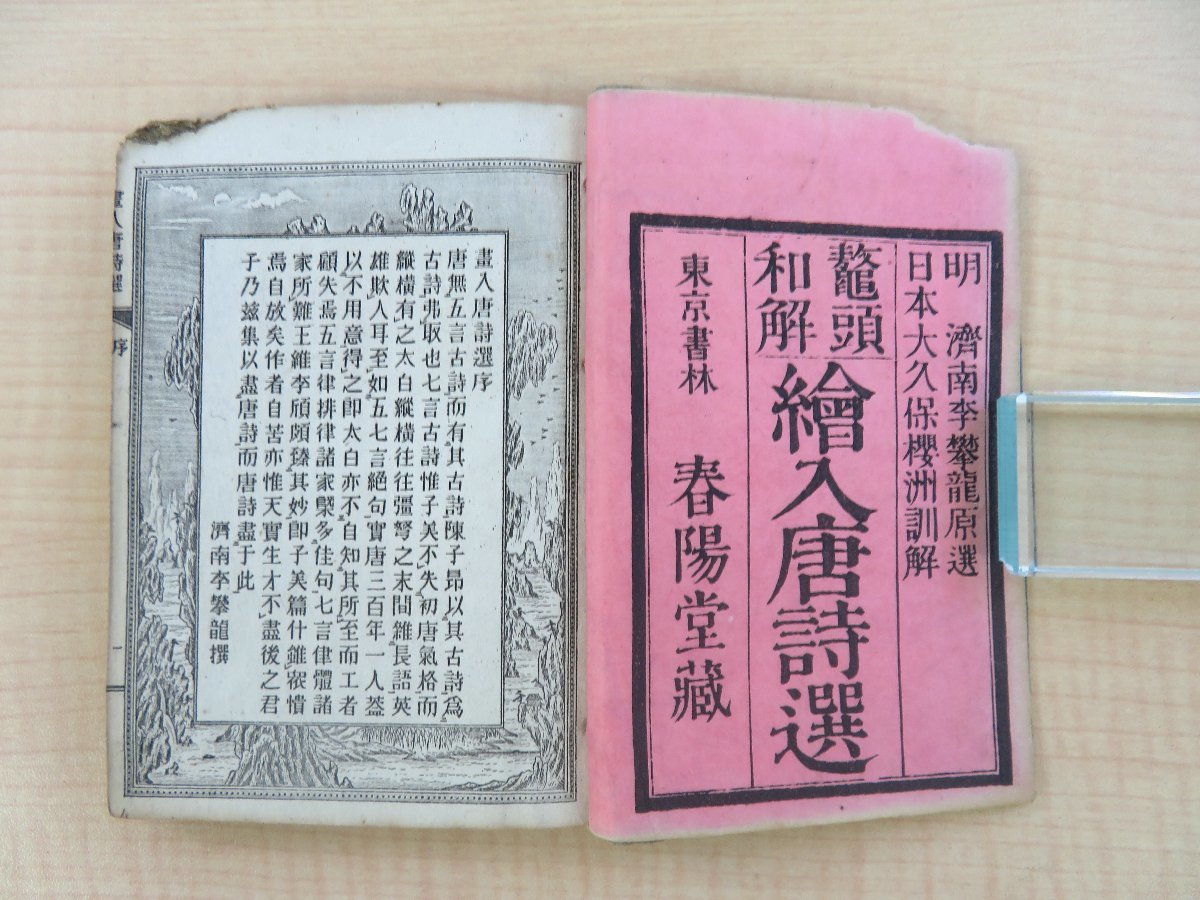 明 濟南李攀龍原選
日本大久保櫻洲訓解
鼇頭
和解
繪入唐詩選
東京書林 春陽堂藏
畫入唐詩選序
唐無五言古詩而有其古詩陳子昂以其古詩爲
古詩弗取也七言古詩惟子美不失初唐氣格而
縱橫有之太白縱橫往往彊弩之末間雜長語英
雄欺人耳至如五七言絕句實唐三百年一人葢
以不用意得之卽太白亦不自知其所至而工者
顧失焉五言律排律諸家槩多佳句七言律體諸
家所難王維李頎頗臻其妙卽子美篇什雖衆憒
焉自放矣作者自苦亦惟天實生才不盡後之君
子乃玆集以盡唐詩而唐詩盡于此
濟南李攀龍撰
畫入唐詩選
序
一